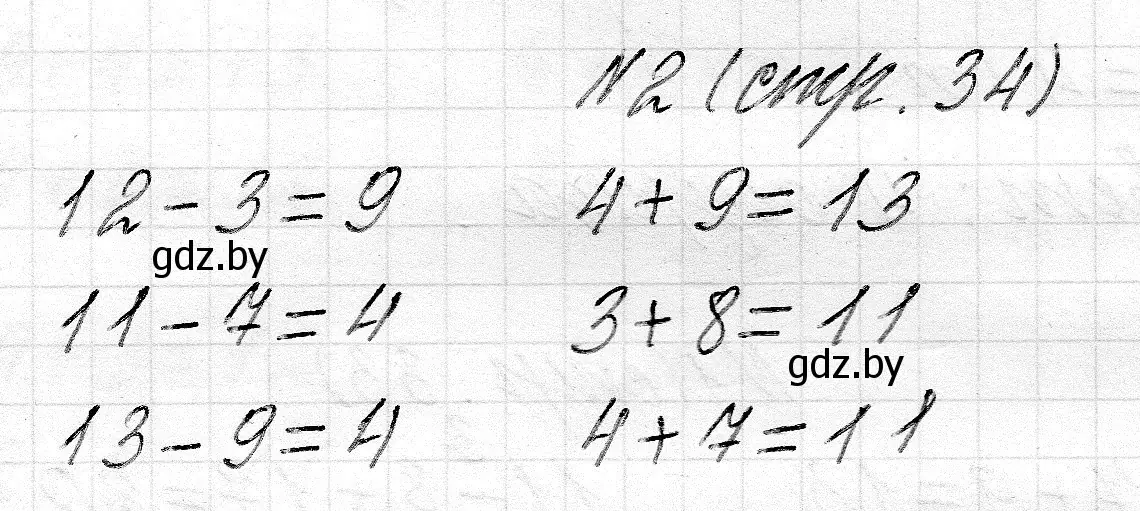 №2 (стр. 34)
12 - 3 = 9 4 + 9 = 13
gdz.by
11 - 7 = 4 3 + 8 = 11
gdz.by
13 - 9 = 4 4 + 7 = 11